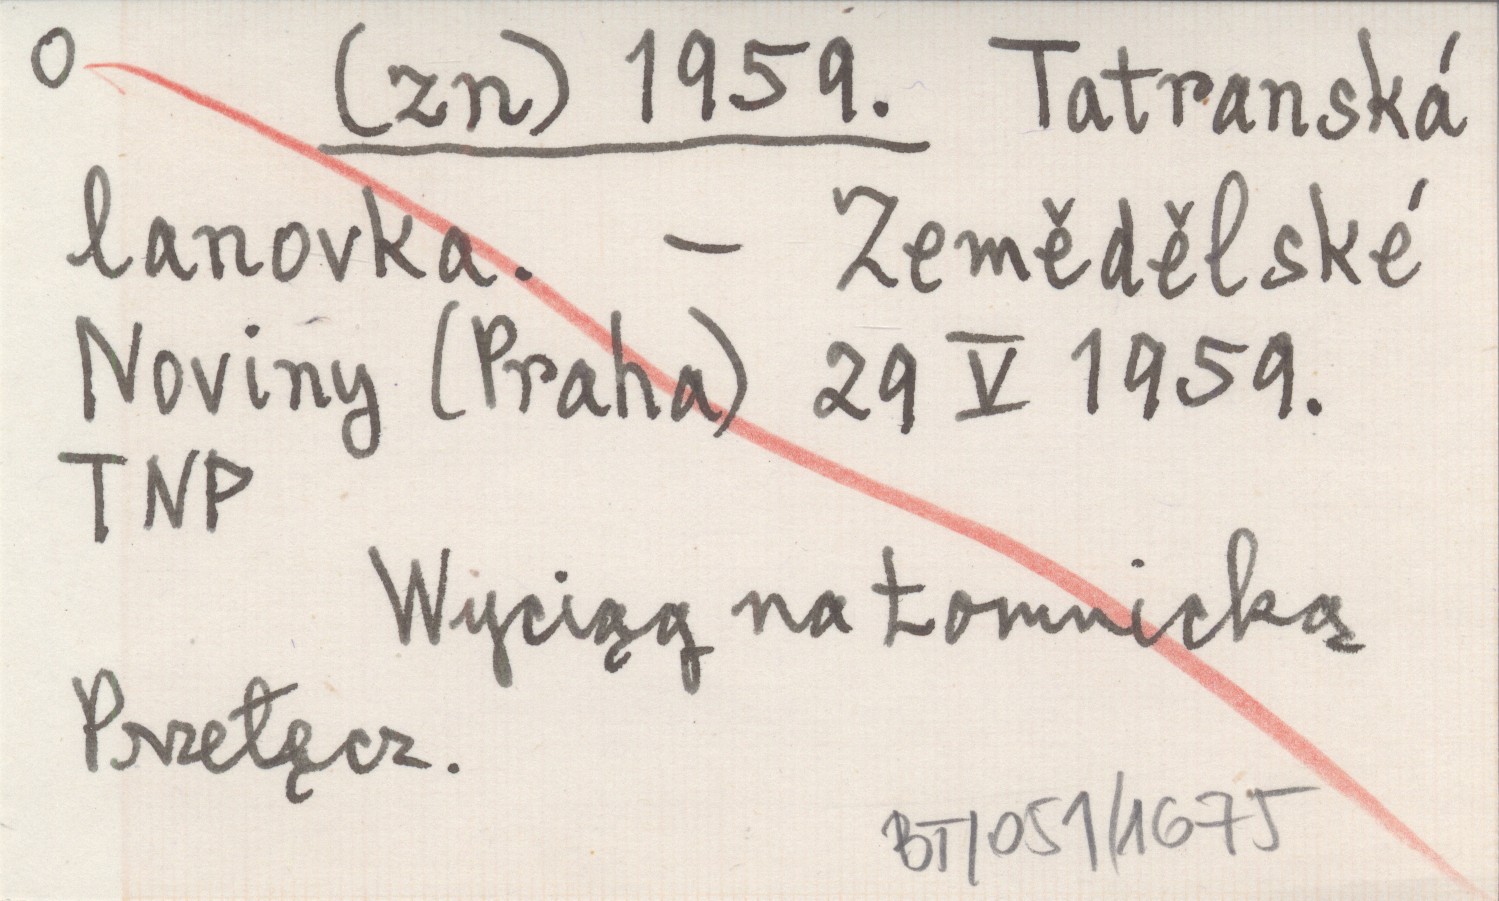 O (zn) 1959. Tatranská
lanovka. – Zemědělské
Noviny (Praha) 29 V 1959.
TNP
Wyciąg na Łomnicką
Przełęcz.
BT/051/1675